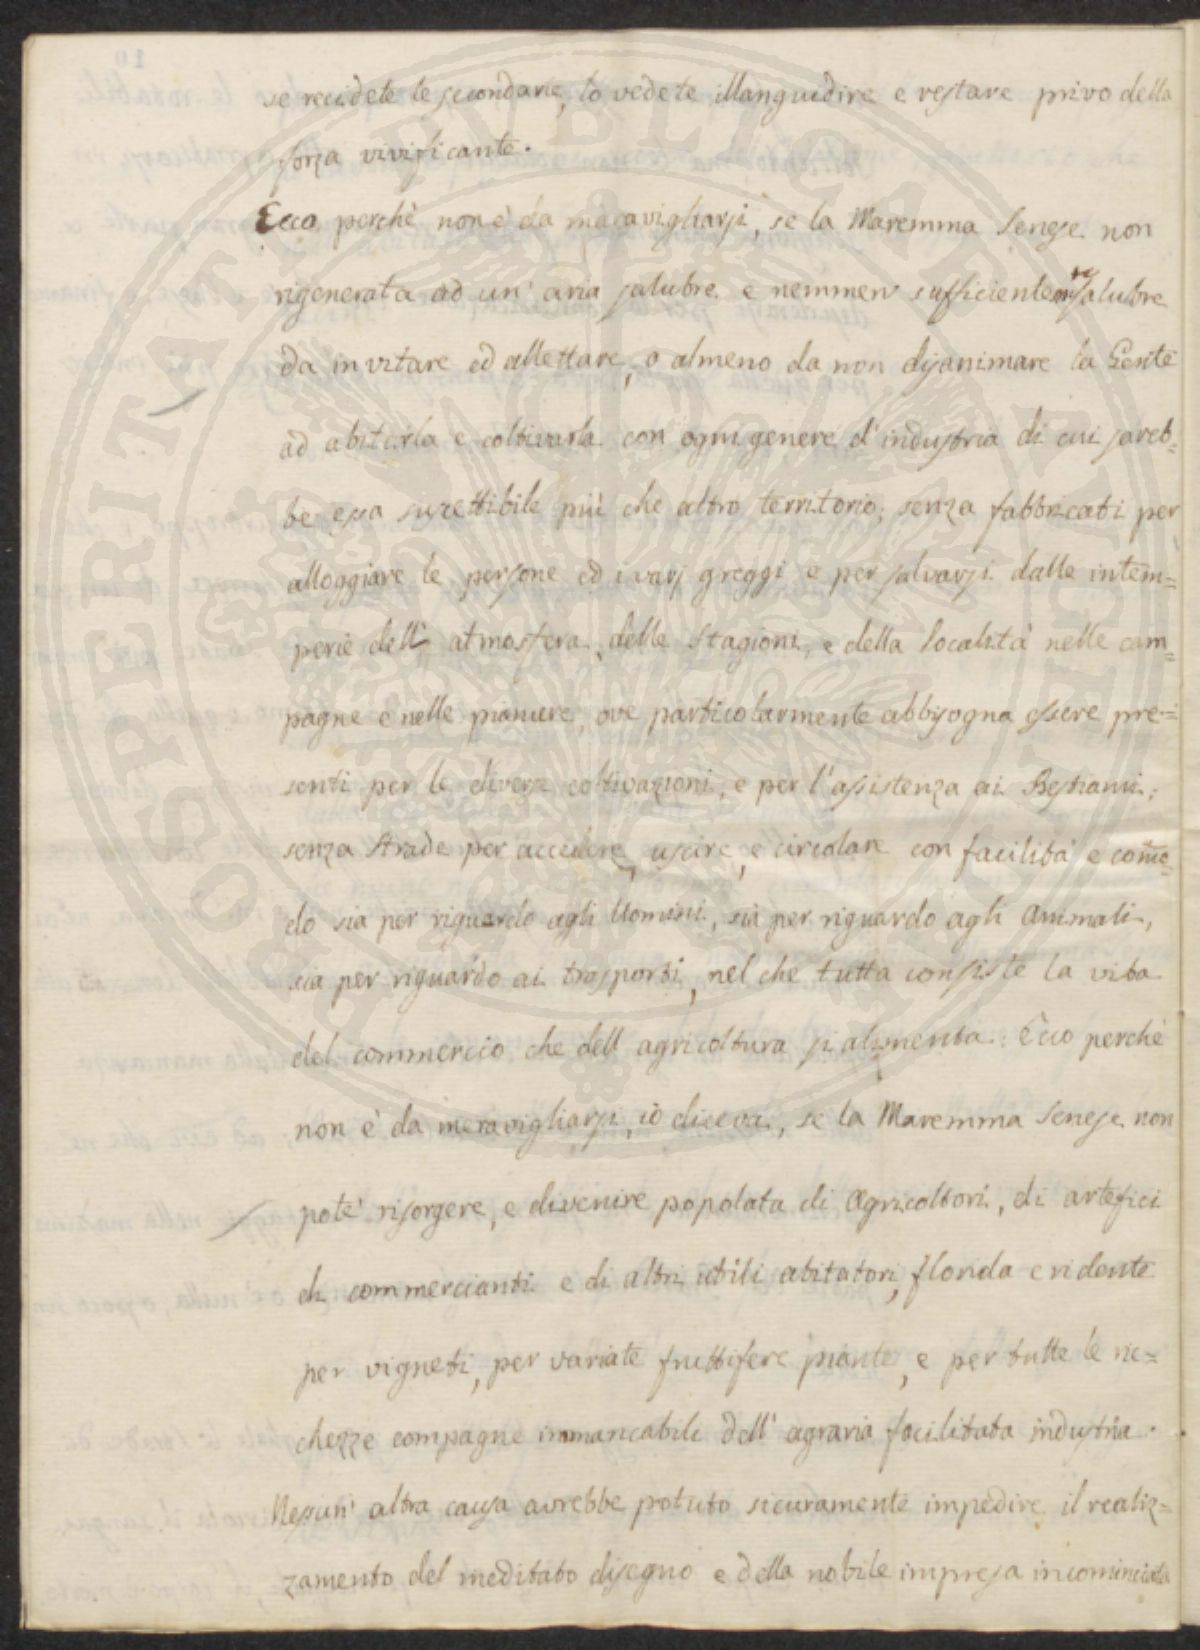 se recidete le secondarie, lo vedete illanguidire e restare privo della
forza vivificante.
Ecco perchè non è da maravigliarsi, se la Maremma Senese non
rigenerata ad un' aria salubre e nemmen sufficientemte salubre
da invitare ed allettare, o almeno da non disanimare la Gente
ad abitarla e coltivarla con ogni genere d'industria di cui sareb=
be essa suscettibile più che altro territorio; senza fabbricati per
alloggiare le persone ed i varj greggi e per salvarsi dalle intem=
perie dell' atmosfera, delle Stagioni, e della località nelle cam=
pagne e nelle pianure, ove particolarmente abbisogna essere pre=
senti per le diverse coltivazioni, e per l'assistenza ai Bestiami;
senza Strade per accedere, uscire, e circolare con facilità e como=
do sia per riguardo agli Uomini, sia per riguardo agli Animali,
sia per riguardo ai trasporti, nel che tutta consiste la vita
del commercio che dell agricoltura si alimenta. Ecco perchè
non è da meravigliarsi, io diceva, se la Maremma Senese non
potè risorgere, e divenire popolata di Agricoltori, di artefici
di commercianti e di altri utili abitatori, florida e ridente
per vigneti, per variate fruttifere piante, e per tutte le ric=
chezze compagne immancabili dell' agraria facilitata industria.
Nessun' altra causa avrebbe potuto sicuramente impedire il realiz=
zamento del meditato disegno e della nobile impresa incominciata
PROSPERITATI PUBLICAE AUGENDAE